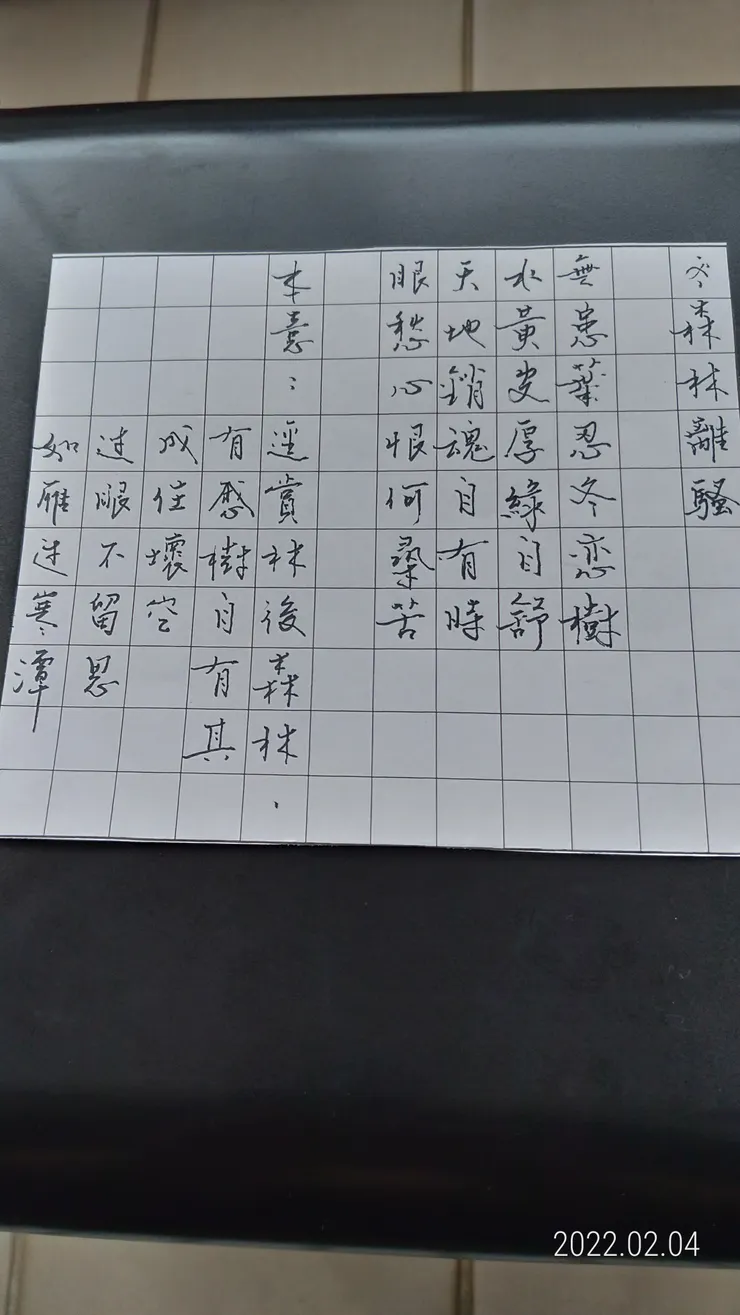 冬森林離騷
無患葉忍冬恋樹
水黃皮厚綠自舒
天地銷魂自有時
眼愁心恨何桑苦
本意：
逕賞林後森林、
有感樹自有其
成住壞空
过眼不留思
如雁过寒潭
2022.02.04